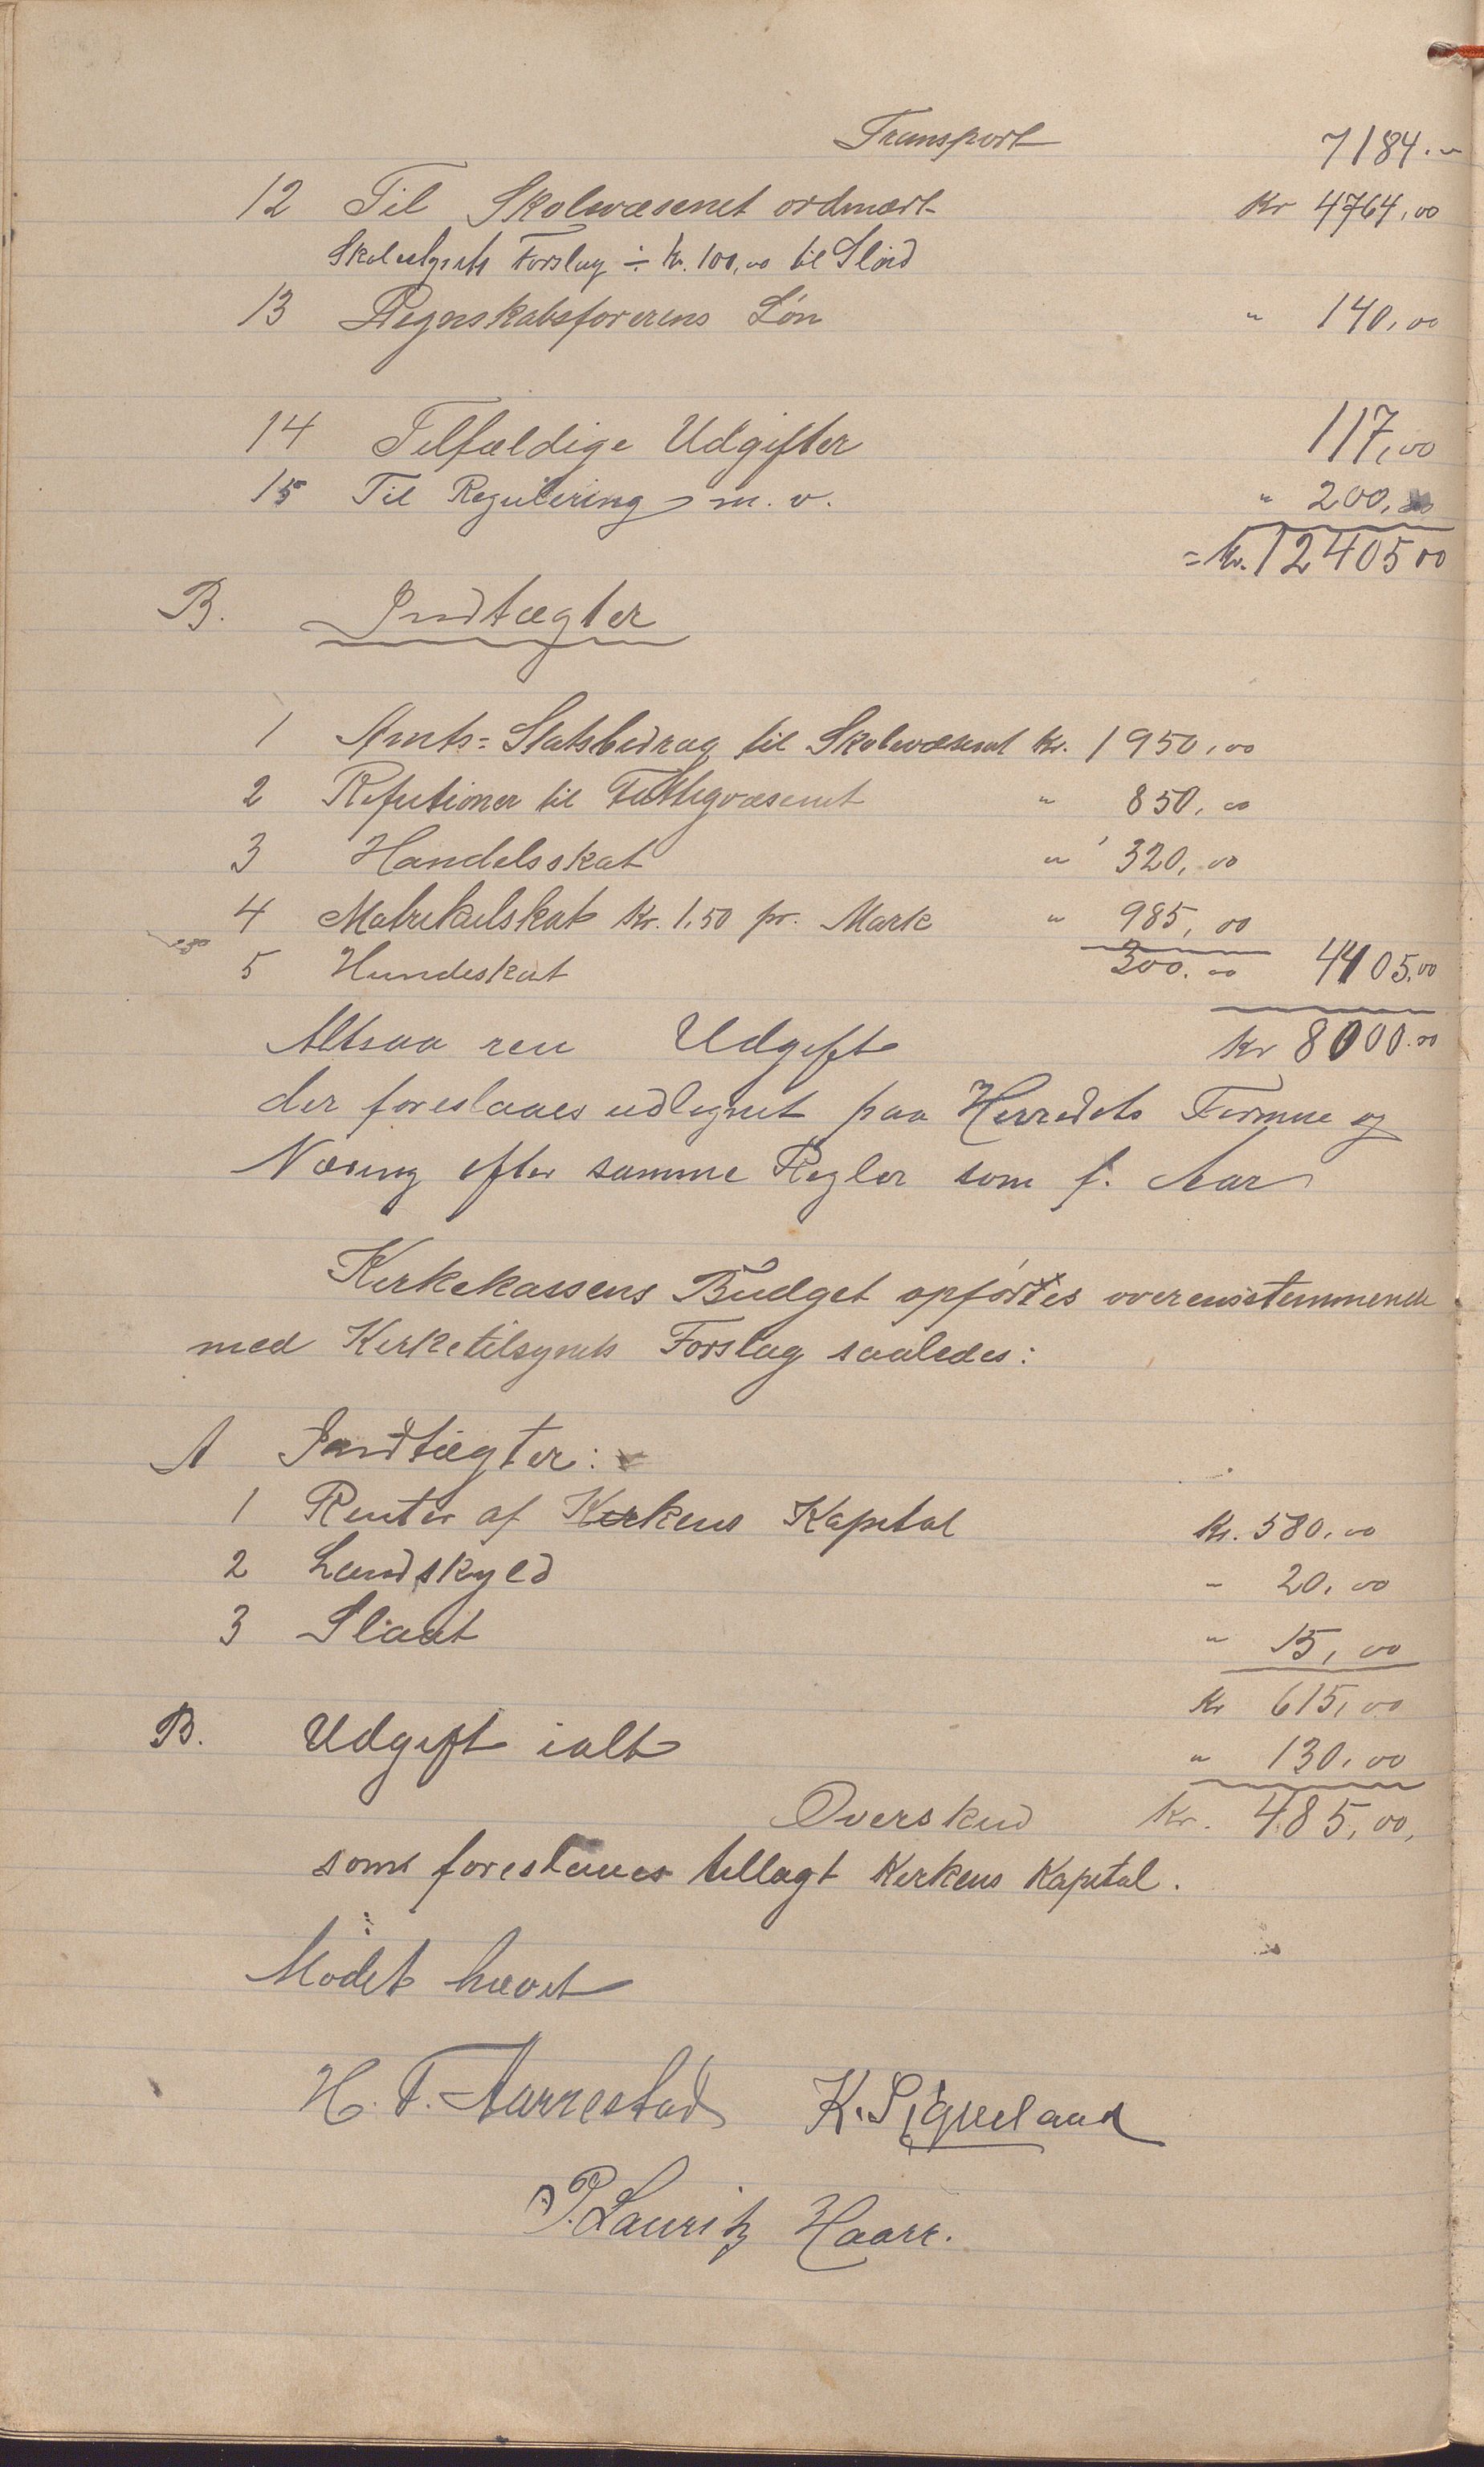 Transport 7184.-
12 Til Skolevæsenet ordinært Kr 4764,00
Skolestyrets Forslag ÷ kr. 100,00 til Sløid
13 Regnskabsførerens Løn " 140,00
14 Tilfældige Udgifter 117,00
15 Til Regulering m. v. " 200,00
= Kr. 12405 00
B. Indtægter
1 Amts= Statsbidrag til Skolevæsenet Kr. 1950,00
2 Refutioner til Fattigvæsenet " 850,00
3 Handelsskat " 320,00
4 Matrikulskat Kr. 1,50 pr. Mark " 985,00
5 Hundeskat 300.00 4405,00
Altsaa ren Udgift Kr 8000.00
der foreslaaes udlignet paa Herredets Formue og
Næring efter samme Regler som f. Aar
Kirkekassens Budget opførtes overensstemmende
med Kirketilsynets Forslag saaledes:
A Indtægter:
1 Renter af Kirkens Kapital Kr. 580,00
2 Landskyld - 20,00
3 Slaat " 15,00
Kr 615,00
B. Udgift ialt " 130,00
Overskud Kr. 485,00,
som foreslaaes tillagt Kirkens Kapital.
Mødet hævet
H. T. Aarrestad K. Sigveland
P. Lauritz Haarr.